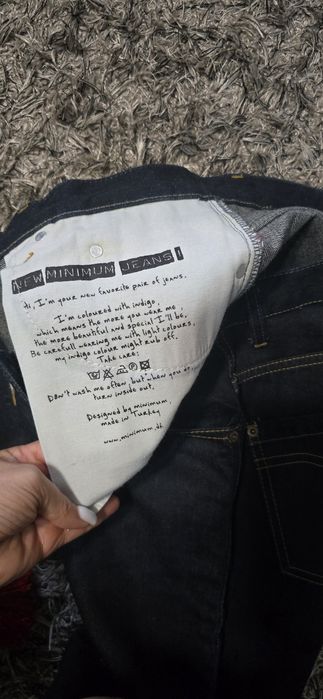 NEW MINIMUM JEANS!
Hi, I'm your new favorite pair of jeans.
I'm coloured with indigo,
which means the more you wear me,
the more beautiful and special I'll be.
Be carefull wearing me with light colours,
my indigo colour might rub off.
Take care:
Don't wash me often, but when you do,
turn inside out.
Designed by minimum,
made in Turkey
www.minimum.dk